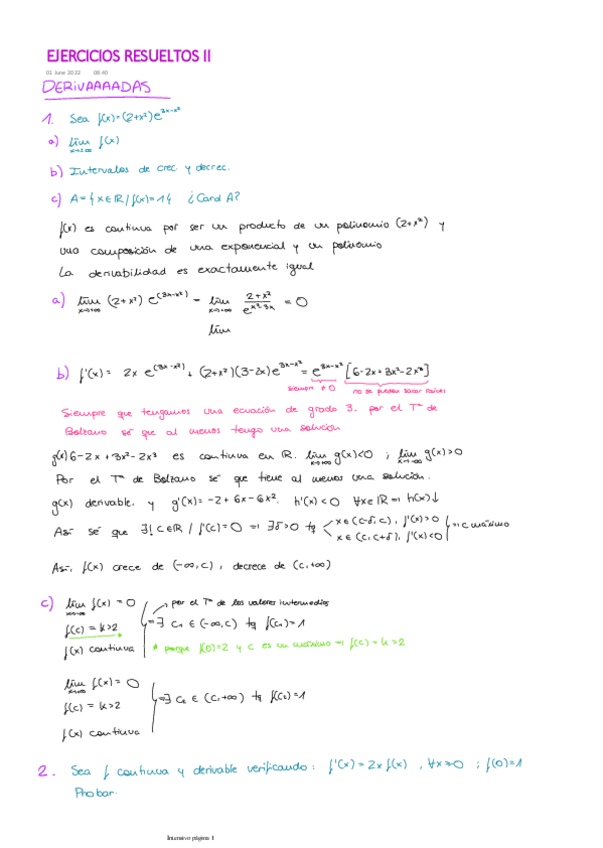 EJERCICIOS RESUELTOS II
01 June 2022 08:40
DERIVAAAADAS
1. Sea f(x)=(2+x²)e^{3x-x²}
a) lím_{x→±∞} f(x)
b) Intervalos de crec. y decrec.
c) A = {x∈ℝ / f(x)=1} ¿Card A?
f(x) es continua por ser un producto de un polinomio (2+x²) y
una composición de una exponencial y un polinomio
La derivabilidad es exactamente igual
a) lím_{x→+∞} (2+x²) e^{(3x-x²)} = lím_{x→+∞} (2+x²)/(e^{x²-3x}) = 0
lím
b) f'(x) = 2x e^{(3x-x²)} + (2+x²)(3-2x)e^{3x-x²} = e^{3x-x²} [6-2x+3x²-2x³]
siempre ≠0 no se pueden sacar raíces
Siempre que tengamos una ecuación de grado 3, por el Tª de
Bolzano sé que al menos tengo una solución
g(x) 6-2x+3x²-2x³ es continua en ℝ. lím_{x→+∞} g(x)<0 ; lím_{x→-∞} g(x)>0
Por el Tª de Bolzano sé que tiene al menos una solución.
g(x) derivable. y g'(x) = -2+6x-6x². h'(x)<0 ∀x∈ℝ ⇒ h(x)↓
Así sé que ∃! c∈ℝ / f'(c)=0 ⇒ ∃δ>0 tq x∈(c-δ,c), f'(x)>0
x∈(c,c+δ), f'(x)<0 ⇒ c máximo
Así, f(x) crece de (-∞,c), decrece de (c,+∞)
c) lím_{x→-∞} f(x) = 0 por el Tª de los valores intermedios
f(c) = k>2 ⇒ ∃ c₁ ∈ (-∞,c) tq f(c₁)=1
f(x) continua * porque f(0)=2 y c es un máximo ⇒ f(c)=k>2
lím_{x→+∞} f(x) = 0
f(c) = k>2 ⇒ ∃ c₂ ∈ (c,+∞) tq f(c₂)=1
f(x) continua
2. Sea f continua y derivable verificando: f'(x) = 2x f(x) , ∀x≠0 ; f(0)=1
Probar.
Intensivo página 1